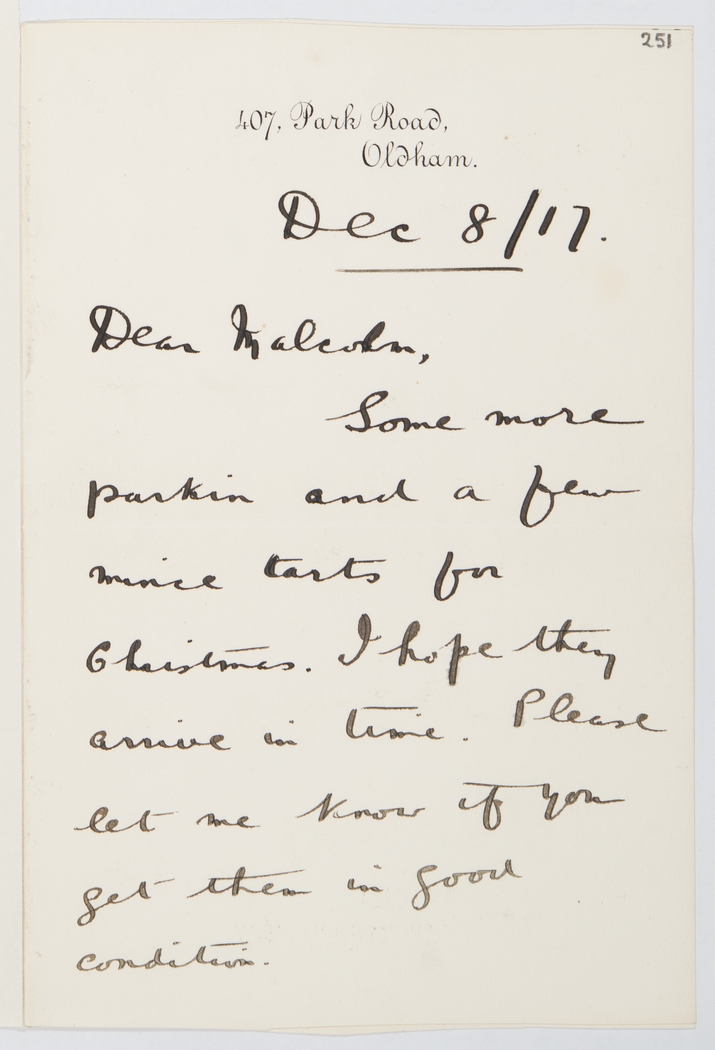 251
407, Park Road,
Oldham.
Dec 8/17.
Dear Malcolm,
Some more
parkin and a few
mince tarts for
Christmas. I hope they
arrive in time. Please
let me know if you
get them in good
condition.